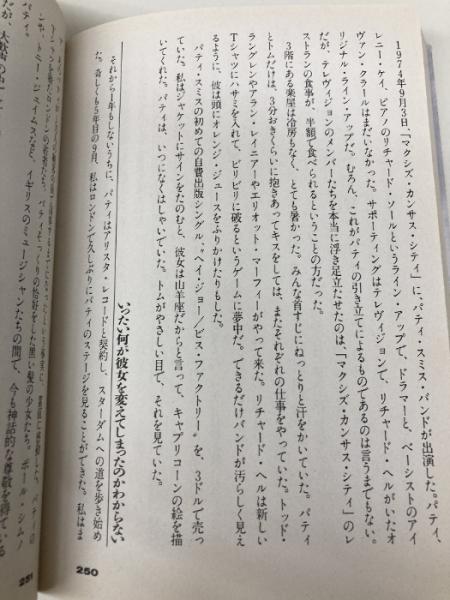 1974年9月3日、「マクシズ・カンサス・シティ」に、パティ・スミス・バンドが出演した。パティ、
レニー・ケイ、ピアノのリチャード・ソールというライン・アップで、ドラマーと、ベーシストのアイ
ヴァン・クラールはまだいなかった。サポーティングはテレヴィジョンで、リチャード・ヘルがいたオ
リジナル・ライン・アップだ。むろん、これがパティの引き立てによるものであるのは言うまでもない。
だが、テレヴィジョンのメンバーたちを本当に浮き足立たせたのは、「マクシズ・カンサス・シティ」のレ
ストランの食事が、半額で食べられるということの方だった。
3階にある楽屋は冷房もなく、とても暑かった。みんな首すじにねっとりと汗をかいていた。パティ
とトムだけは、3分おきくらいに抱きあってキスをしては、またそれぞれの仕事をやっていた。トッド・
ラングレンやアラン・レイニアーやエリオット・マーフィーがやって来た。リチャード・ヘルは新しい
Tシャツにハサミを入れて、ビリビリに破るというゲームに夢中だ。できるだけバンドが汚らしく見え
るように、彼は頭にオレンジ・ジュースをふりかけたりもした。
パティ・スミスの初めての自費出版シングル、〝ヘイ・ジョー／ピス・ファクトリー〟を、3ドルで売っ
ていた。私はジャケットにサインをたのむと、彼女は山羊座だからと言って、キャプリコーンの絵を描
いてくれた。パティは、いつになくはしゃいでいた。トムがやさしい目で、それを見ていた。
いったい何が彼女を変えてしまったのかわからない
それから一年もしないうちに、パティはアリスタ・レコードと契約し、スターダムへの道を歩き始め
た。奇しくも5年目の9月、私はロンドンで久しぶりにパティのステージを見ることができた。私はま
250
パティ。
イギリスのミュージシャンたちの間で、今も神話的な尊敬を得ている
251